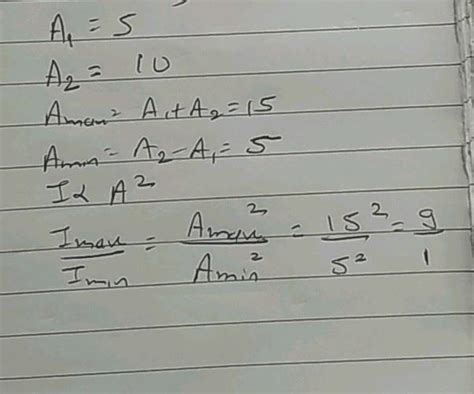 A₁ = 5
A₂ = 10
Amax = A₁+A₂ = 15
Amin = A₂-A₁ = 5
I ∝ A²
Imax/Imin = Amax²/Amin² = 15²/5² = 9/1